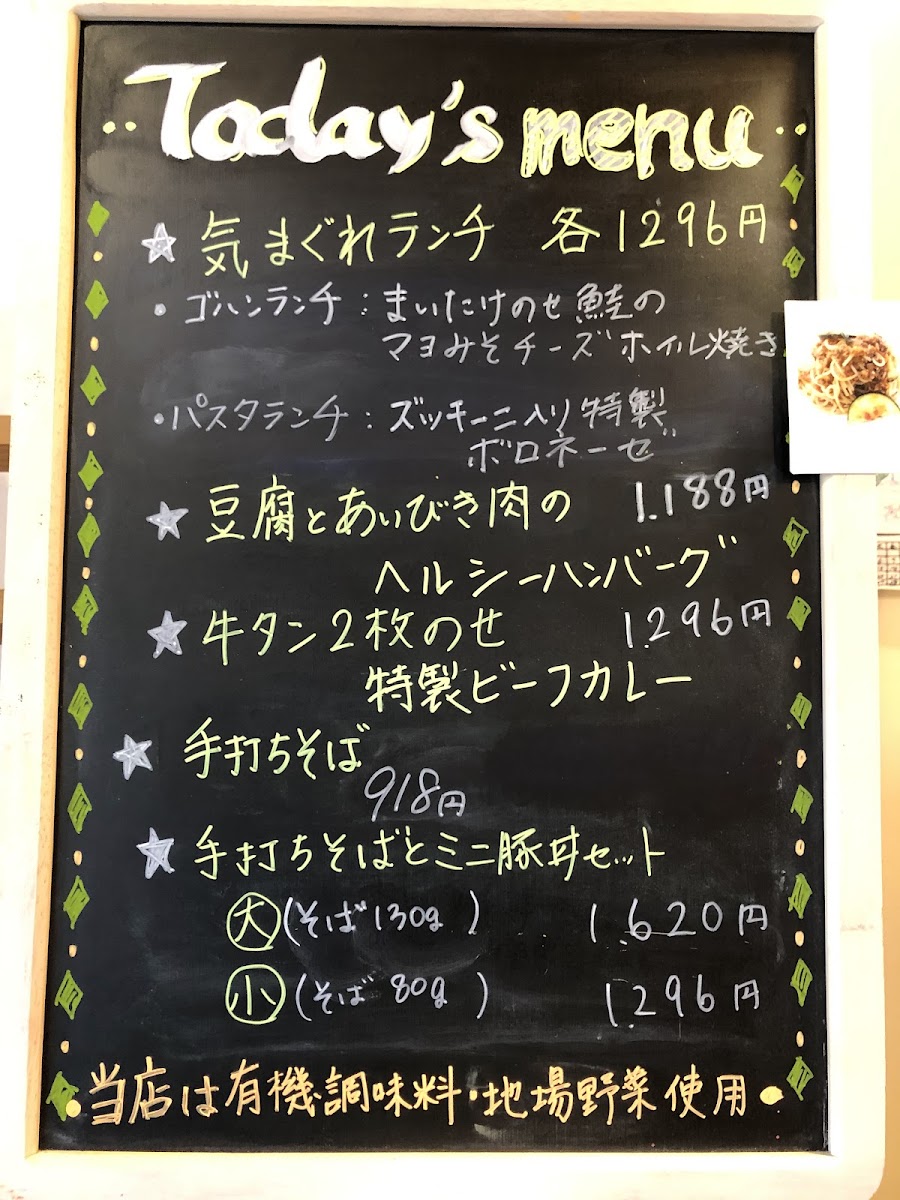 Today's menu
気まぐれランチ 各1296円
・ゴハンランチ：まいたけのせ鮭の
マヨみそチーズホイル焼き
・パスタランチ：ズッキーニ入り特製
ボロネーゼ
豆腐とあいびき肉の 1.188円
ヘルシーハンバーグ
牛タン2枚のせ 1.296円
特製ビーフカレー
手打ちそば
918円
手打ちそばとミニ豚丼セット
大（そば130g） 1.620円
小（そば80g） 1.296円
当店は有機調味料・地場野菜使用